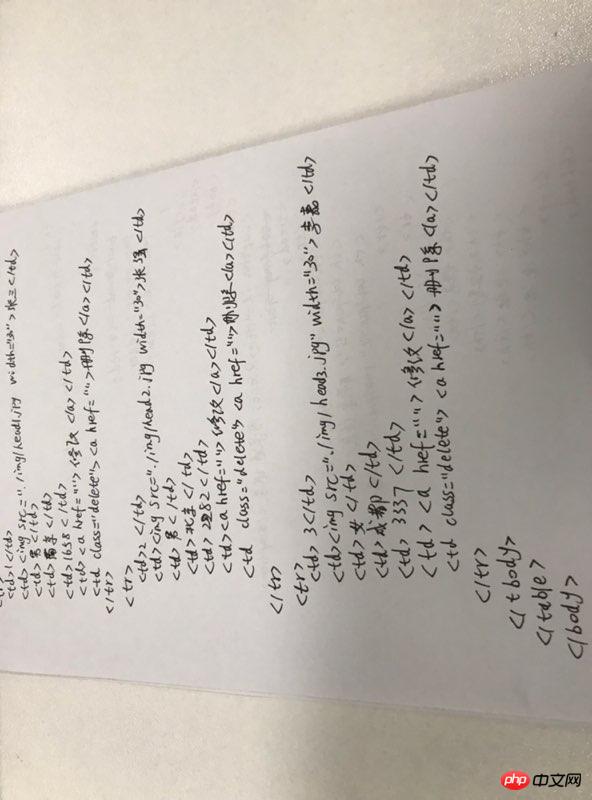 <td>1</td>
<td><img src="./img/head1.jpg" width="30">张三</td>
<td>男</td>
<td>南京</td>
<td>1658</td>
<td><a href="">修改</a></td>
<td class="delete"><a href="">删除</a></td>
</tr>
<tr>
<td>2</td>
<td><img src="./img/head2.jpg" width="30">张强</td>
<td>男</td>
<td>北京</td>
<td>2282</td>
<td><a href="">修改</a></td>
<td class="delete"><a href="">删除</a></td>
</tr>
<tr>
<td>3</td>
<td><img src="./img/head3.jpg" width="30">李嘉</td>
<td>女</td>
<td>成都</td>
<td>3337</td>
<td><a href="">修改</a></td>
<td class="delete"><a href="">删除</a></td>
</tr>
</tbody>
</table>
</body>
php 中文网